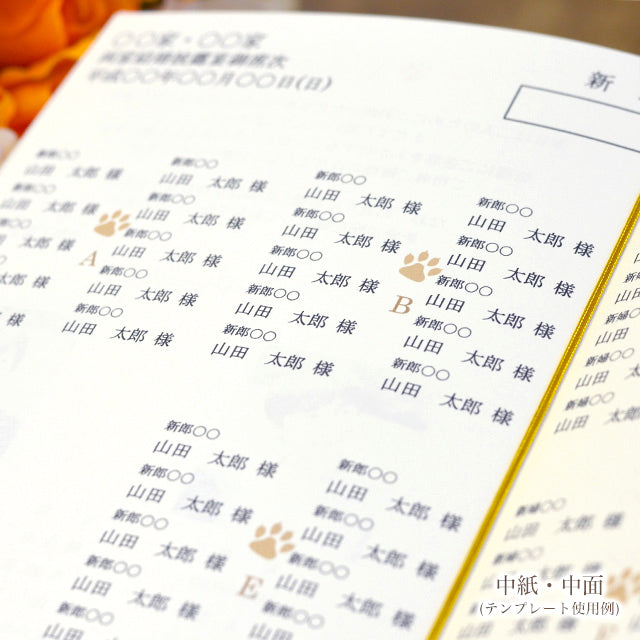 〇〇家・〇〇家
両家結婚披露宴御席次
平成〇〇年〇〇月〇〇日(日)
新
新郎〇〇
山田 太郎 様
新郎〇〇
山田 太郎 様
新郎〇〇
山田 太郎 様
山田 太郎 様
様
A
新郎〇〇
山田 太郎 様
新郎〇〇
山田 太郎 様
新郎〇〇
山田 太郎 様
新郎〇〇
山田 太郎 様
新郎〇〇
山田 太郎 様
新郎〇〇
山田 太郎 様
新郎〇〇
山田 太郎 様
新郎〇〇
山田 太郎 様
新郎〇〇
山田 太郎 様
新郎〇〇
山田 太郎 様
B
新郎〇〇
山田 太郎 様
新郎〇〇
山田 太郎 様
新郎〇〇
山田 太郎 様
新郎〇〇
山田 太郎 様
新郎〇〇
山田 太郎 様
新郎〇〇
山田 太郎 様
新郎〇〇
山田 太郎 様
新郎〇〇
山田 太郎 様
新郎〇〇
山田 太郎 様
新郎〇〇
山田 太郎 様
E
新郎〇〇
山田 太郎 様
新郎〇〇
山田 太郎 様
新郎〇〇
山田 太郎 様
新郎〇〇
山田
新婦〇
山田
新婦〇〇
山田 太
新婦〇〇
山田 太郎
新婦〇〇
山田 太郎 様
新婦〇〇
山田
中紙・中面
(テンプレート使用例)